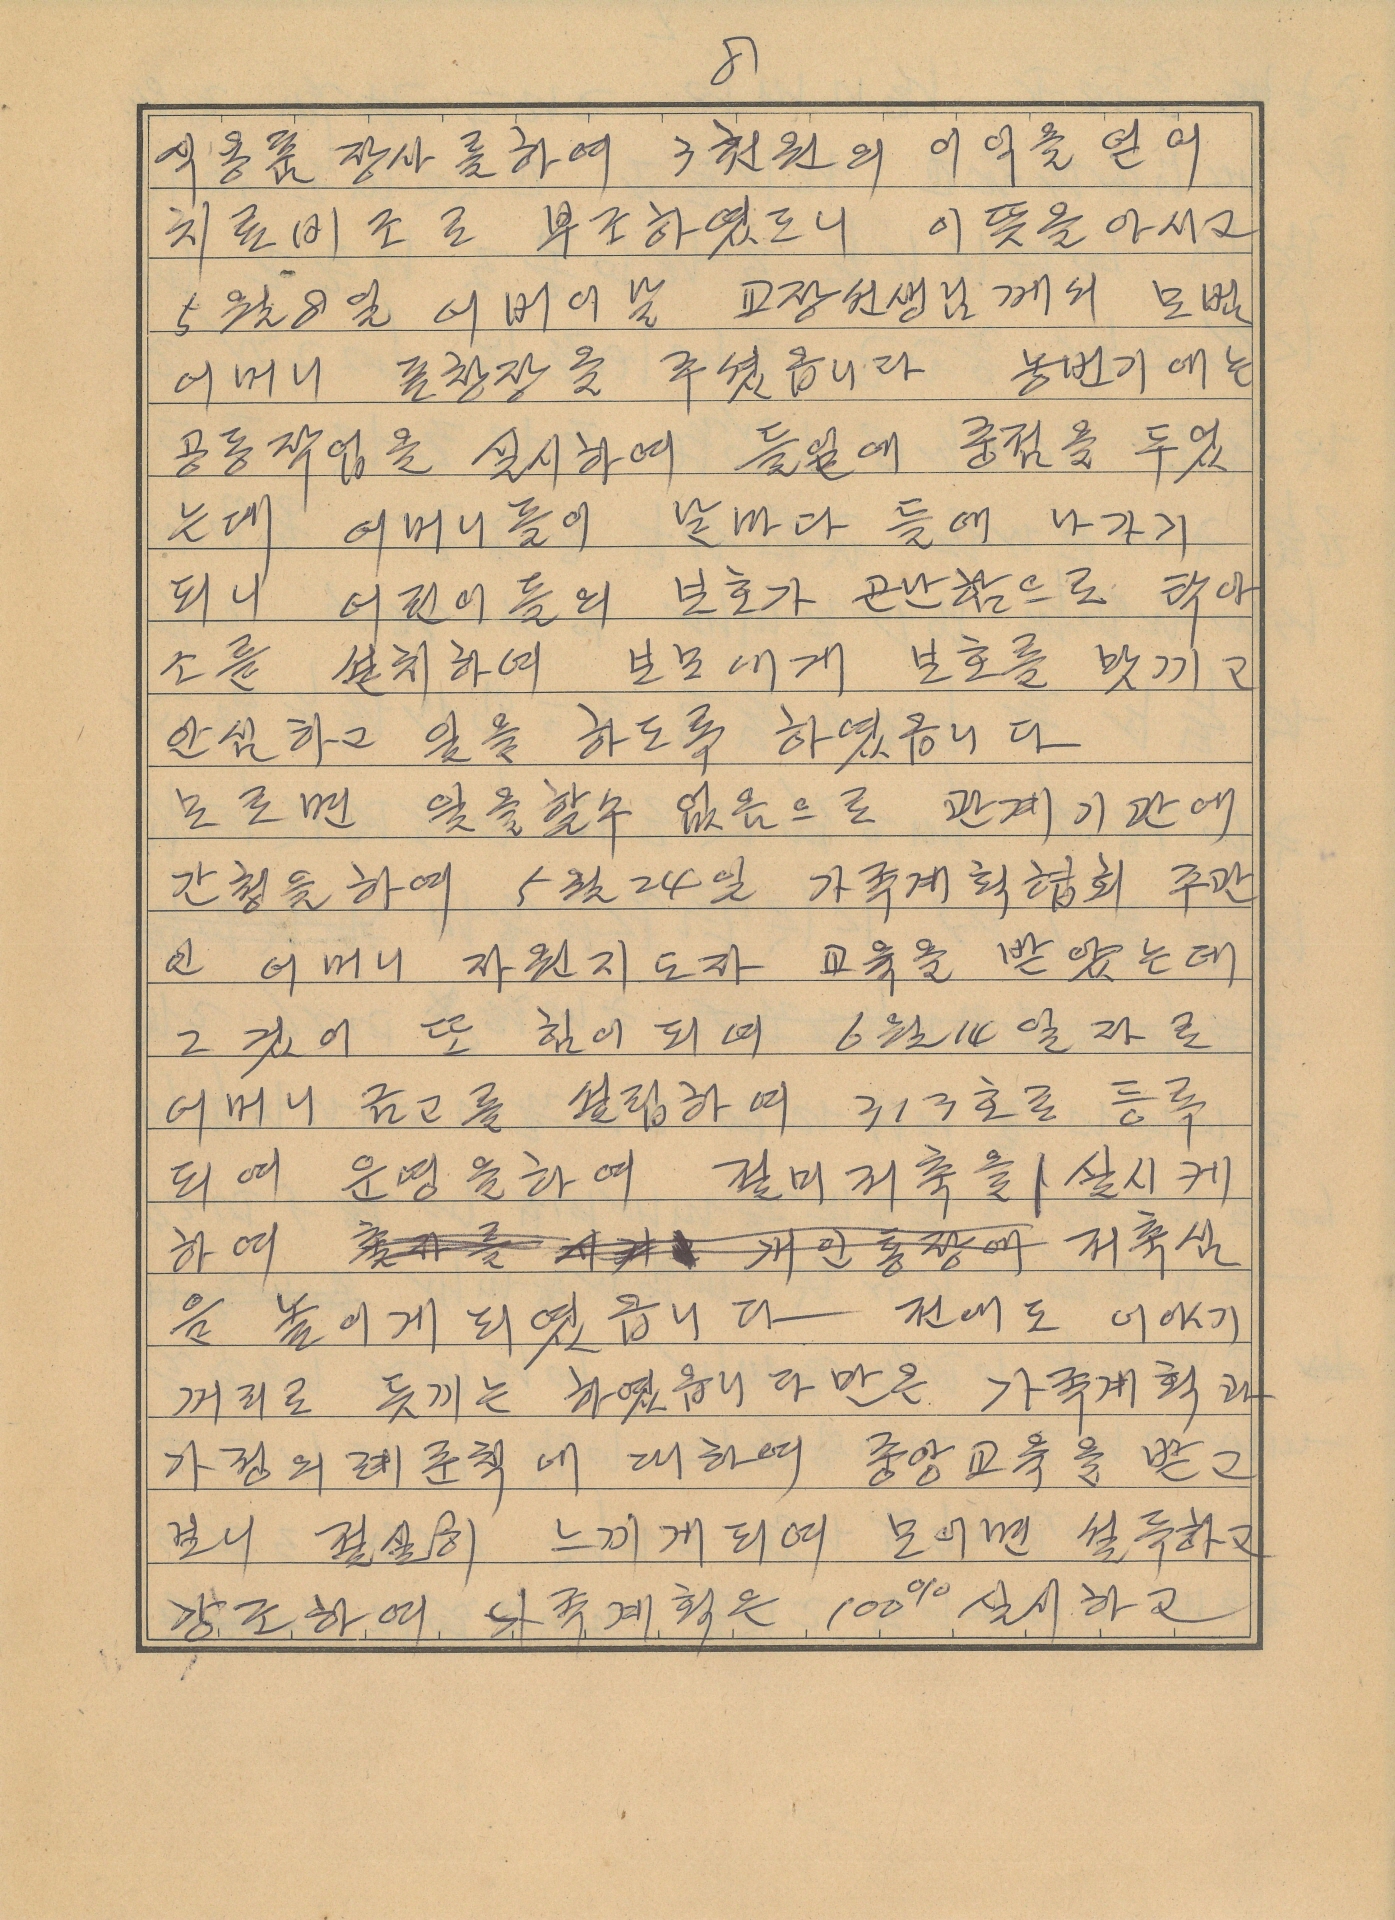 8
식용품 장사를하여 3천원의 이익을 얻어
치료비조로 부조하였드니 이뜻을아시고
5월8일 어버이날 교장선생님께서 모범
어머니 표창장을 주셨읍니다 농번기에는
공동작업을 실시하여 들일에 중점을 두었
는데 어머니들이 날마다 들에 나가게
되니 어린이들의 보호가 곤난함으로 탁아
소를 설치하여 보모에게 보호를 맛끼고
안심하고 일을 하도록 하였읍니다
모르면 일을할수 없음으로 관계기관에
간청을하여 5월24일 가족계획협회 주관
인 어머니 자원지도자 교육을 받았는데
그것이 또 힘이되여 6월14일자로
어머니 금고를 설립하여 313호로 등록
되여 운영을하여 절미저축을 실시케
하여 개인통장에 저축심
을 높이게되였읍니다 전에도 이야기
꺼리로 듯끼는 하였읍니다만은 가족계획과
가정의례준칙에 대하여 중앙교육을 받고
보니 절실히 느끼게되여 모이면 설득하고
강조하여 가족계획은 100% 실시하고